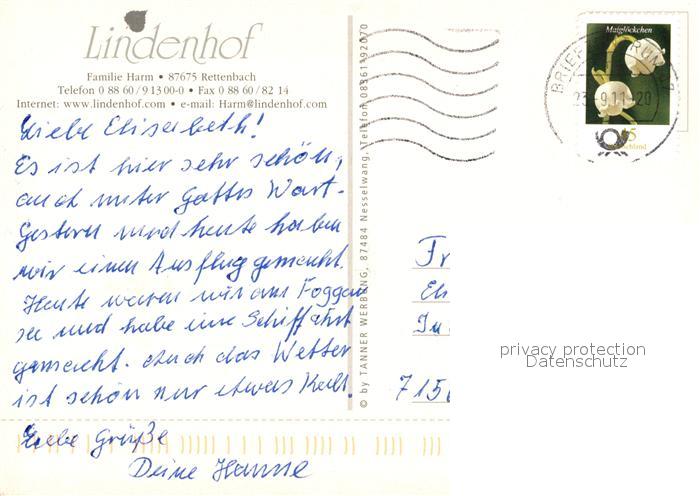 Lindenhof
Familie Harm • 87675 Rettenbach
Telefon 0 88 60 / 9 13 00-0 • Fax 0 88 60 / 82 14
Internet: www.lindenhof.com • e-mail: Harm@lindenhof.com
Liebe Elisabeth!
Es ist hier sehr schön,
auch unter Gottes Wort.
Gestern und heute haben
wir einen Ausflug gemacht.
Heute waren wir am Foggen
see und habe eine Schiffahrt
gemacht. Auch das Wetter
ist schön nur etwas Kalt.
Liebe Grüße
Deine Hanne
© by TANNER WERBUNG, 87484 Nesselwang, Telefon 08361/92070
Maiglöckchen
BRIEF
23.-9.11.-20
45
Deutschland
Fr
El
7150
privacy protection
Datenschutz